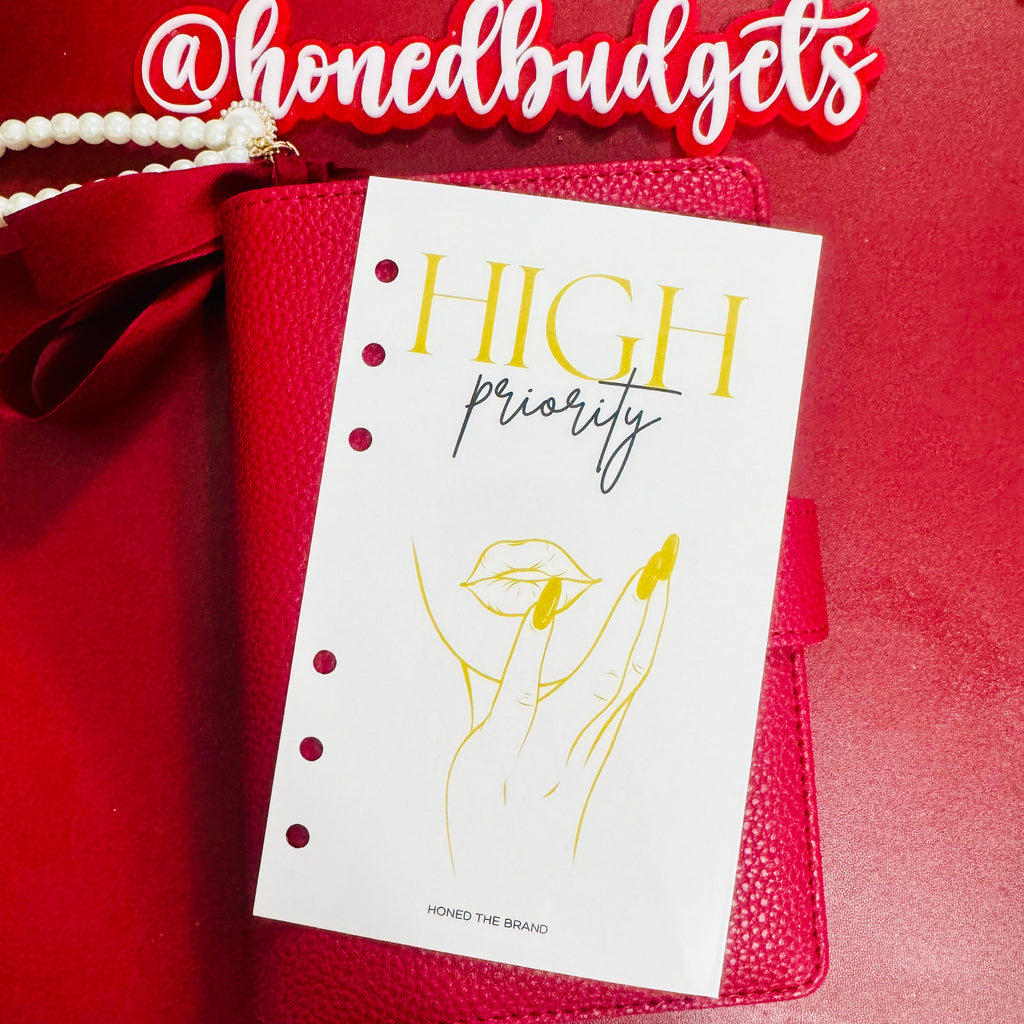 @honedbudgets
HIGH
priority
HONED THE BRAND